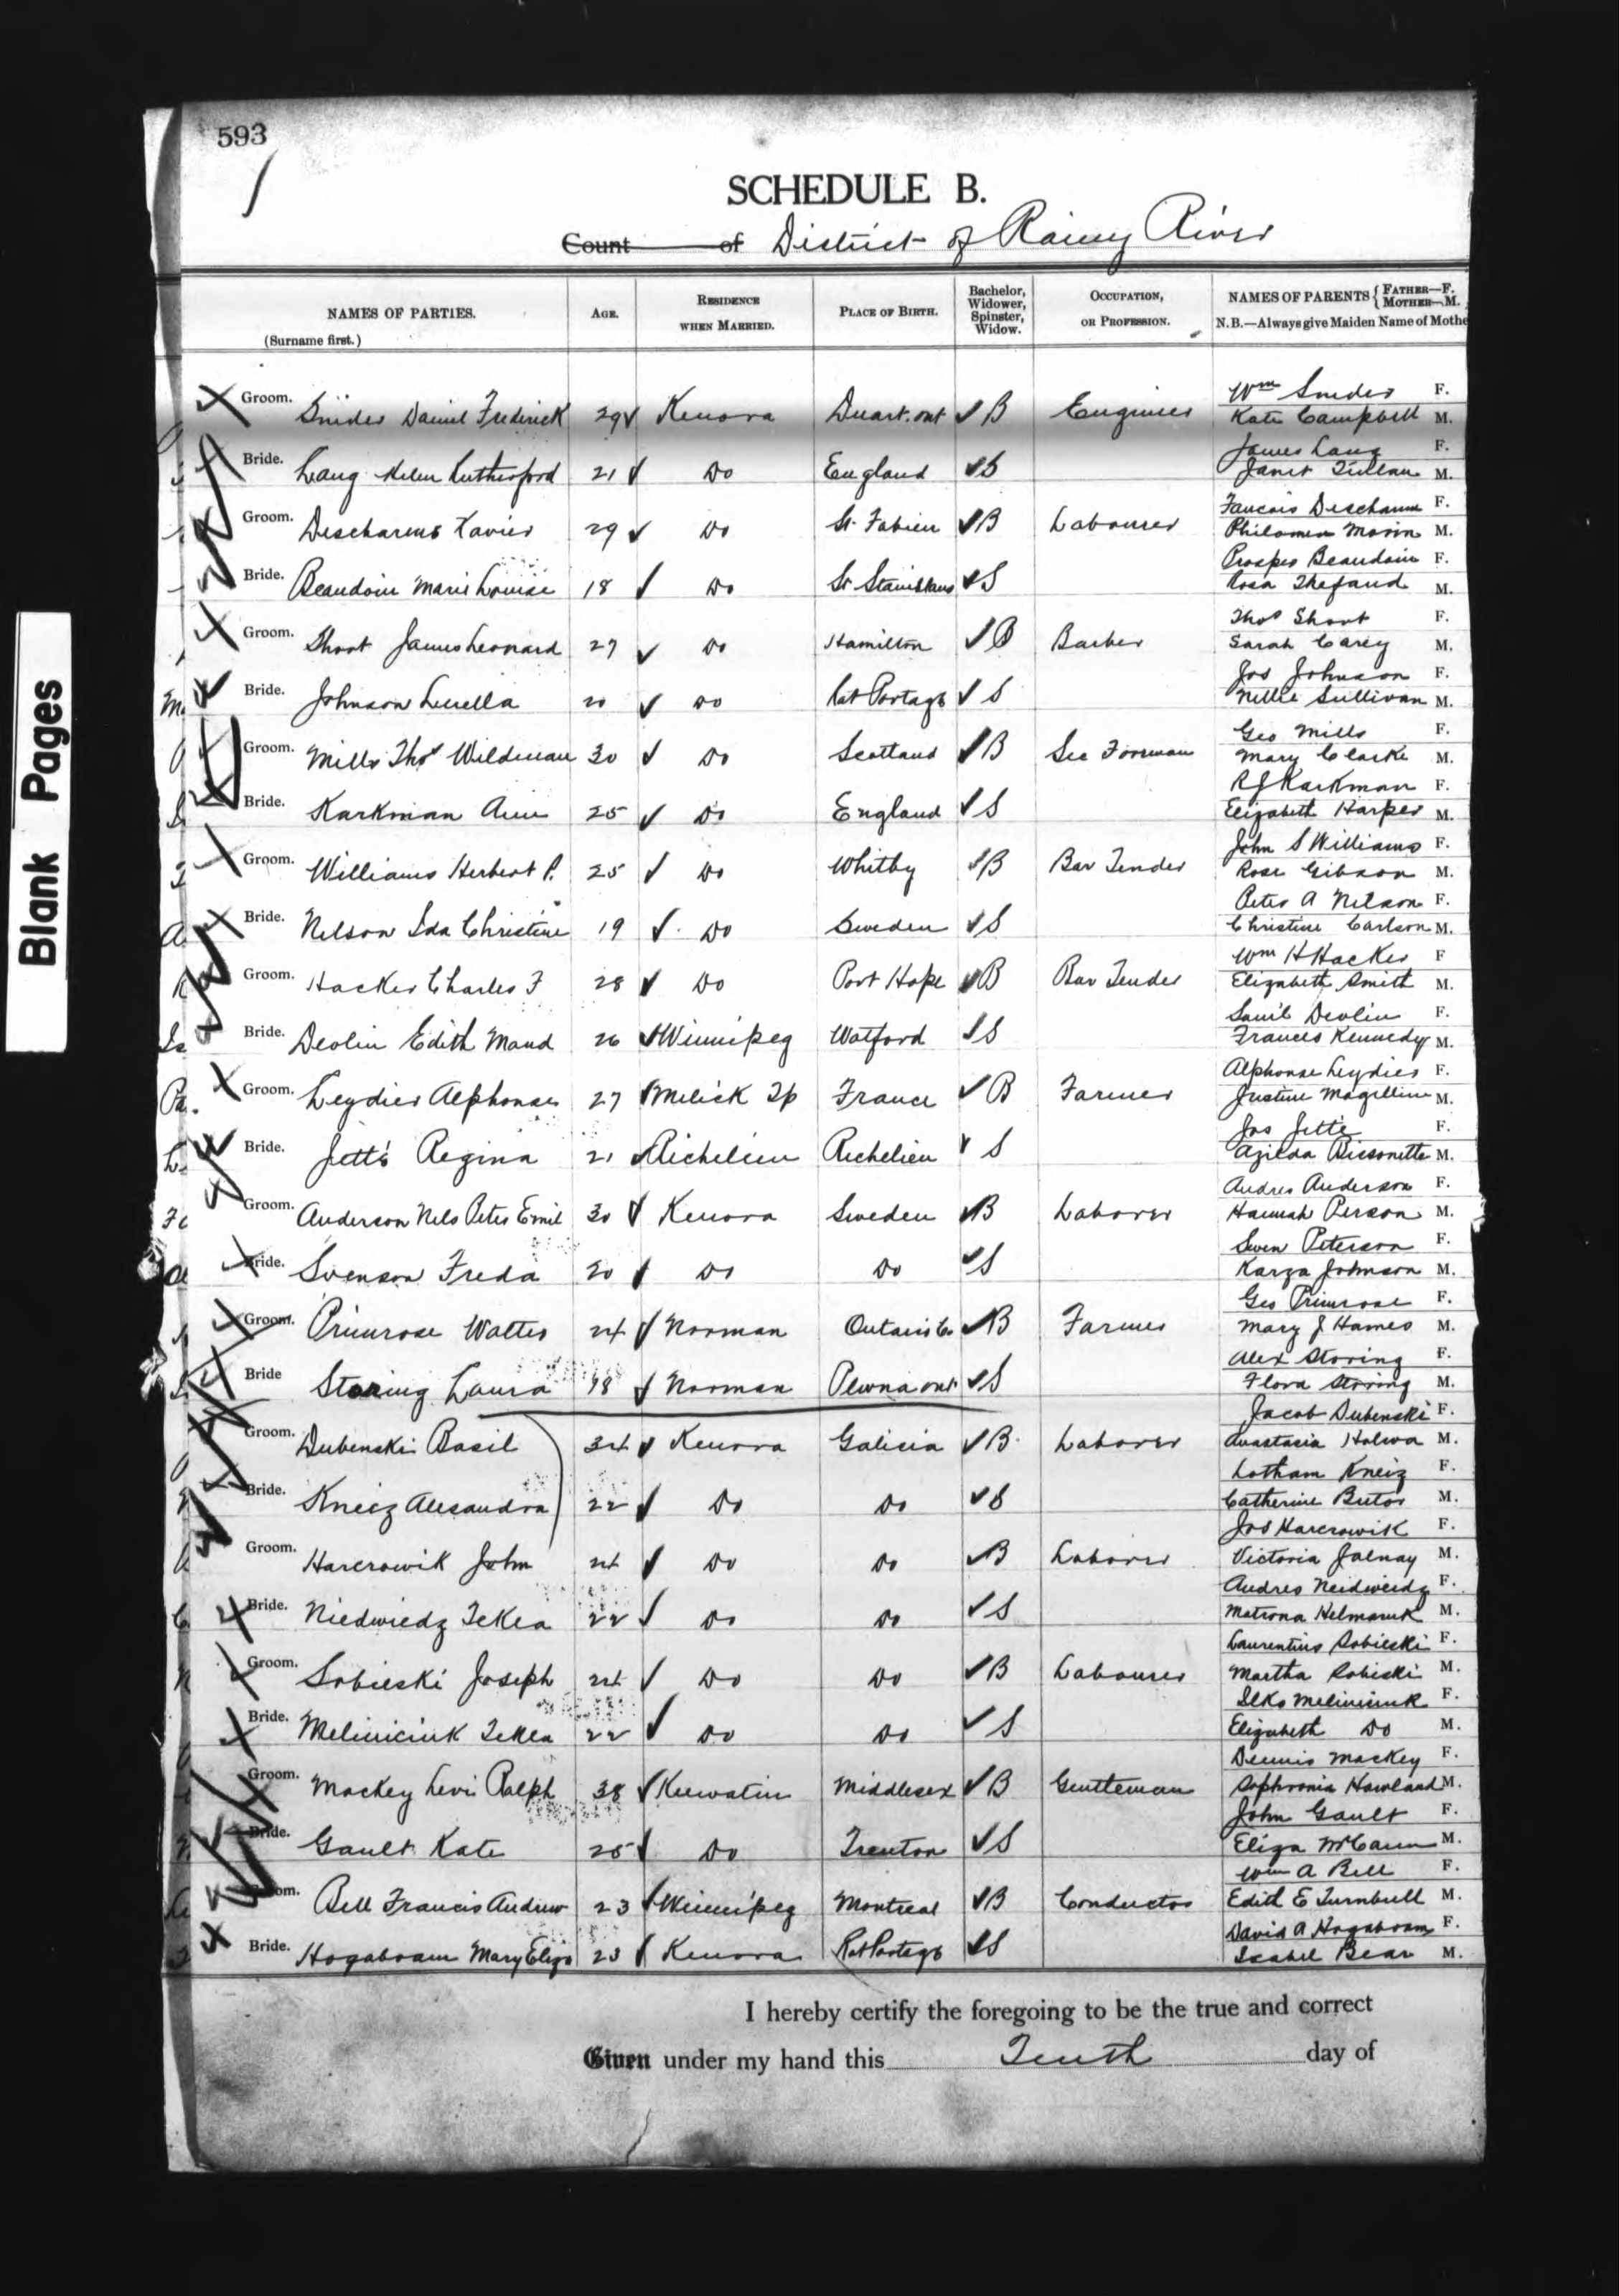 593
SCHEDULE B.
Count of District of Rainy River
NAMES OF PARTIES. (Surname first.) AGE. RESIDENCE WHEN MARRIED. PLACE OF BIRTH. Bachelor, Widower, Spinster, Widow. OCCUPATION, OR PROFESSION. NAMES OF PARENTS { FATHER—F. MOTHER—M. N.B.—Always give Maiden Name of Mothe
Wm Snider F.
Groom. Snider Daniel Frederick 29 Kenora Duart. ont B Engineer Kate Campbell M.
James Lang F.
Bride. Lang Helen Rutherford 21 Do England S Janet M.
Francois Deschamn F.
Groom. Descharms Xavier 29 Do St. Fabien B Labourer Philomen Morin M.
Prosper Beaudoin F.
Bride. Beaudoin Marie Louise 18 Do St Stanislaus S Rosa Thefaud M.
Thos Shoot F.
Groom. Shoot James Leonard 27 Do Hamilton B Barber Sarah Carey M.
Jos Johnson F.
Bride. Johnson Luella 20 Do Rat Portage S Nellie Sullivan M.
Geo Mills F.
Groom. Mills Thos Wildman 30 Do Scotland B Sec Foreman Mary Clarke M.
R J Karkman F.
Bride. Karkman Ann 25 Do England S Elizabeth Harper M.
John S Williams F.
Groom. Williams Herbert P. 25 Do Whitby B Bar Tender Rose Gibson M.
Peter A Nelson F.
Bride. Nelson Ida Christine 19 Do Sweden S Christine Carlson M.
Wm H Hacker F
Groom. Hacker Charles F 28 Do Port Hope B Bar Tender Elizabeth Smith M.
Saml Devlin F.
Bride. Devlin Edith Maud 26 Winnipeg Watford S Frances Kennedy M.
Alphonse Leydier F.
Groom. Leydier Alphonse 27 Melick Tp France B Farmer Justine Magilline M.
Jos Jette F.
Bride. Jette Regina 21 Richelieu Richelieu S Azilda Bissonette M.
Andres Anderson F.
Groom. Anderson Nels Peter Emil 30 Kenora Sweden B Laborer Hannah Person M.
Swen Peterson F.
Bride. Svenson Freda 20 Do Do S Karza Johnson M.
Geo Primrose F.
Groom. Primrose Walter 24 Norman Ontario Co. B Farmer Mary J Hames M.
Alex Storing F.
Bride Storing Laura 18 Norman Plevna ont S Flora Storing M.
Jacob Dubenski F.
Groom. Dubenski Basil 34 Kenora Galicia B Laborer Anastasia Holwa M.
Lotham Kneiz F.
Bride. Kneiz Alesandra 22 Do Do S Catherine Butor M.
Jos Harcrowik F.
Groom. Harcrowik John 24 Do Do B Laborer Victoria Jalnay M.
Andres Neidwiedz F.
Bride. Niedwiedz Tekla 22 Do Do S Matrona Helmaruk M.
Laurentius Sobieski F.
Groom. Sobieski Joseph 24 Do Do B Labourer Martha Sobieski M.
Ilko Meliniciuk F.
Bride. Meliniciuk Tekla 22 Do Do S Elizabeth Do M.
Dennis Mackey F.
Groom. Mackey Levi Ralph 38 Keewatin Middlesex B Gentleman Sophronia Howland M.
John Gault F.
Bride. Gault Kate 25 Do Trenton S Eliza McCann M.
Wm A Bell F.
Groom. Bell Francis Andrew 23 Winnipeg Montreal B Conductor Edith E Turnbull M.
David A Hogaboam F.
Bride. Hogaboam Mary Eliza 23 Kenora Rat Portage S Isabel Bear M.
I hereby certify the foregoing to be the true and correct
Given under my hand this Tenth day of
Blank Pages